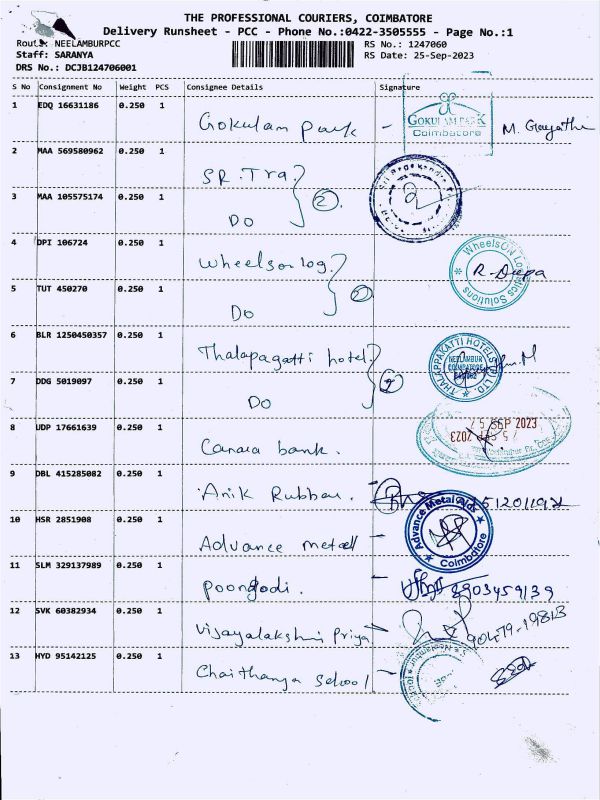 THE PROFESSIONAL COURIERS, COIMBATORE
Delivery Runsheet - PCC - Phone No.:0422-3505555 - Page No.:1
Route: NEELAMBURPCC RS No.: 1247060
Staff: SARANYA RS Date: 25-Sep-2023
DRS No.: DCJB124706001
S No Consignment No Weight PCS Consignee Details Signature
1 EDQ 16631186 0.250 1 Gokulam park - GOKULAM PARK Coimbatore M. Gayathri
2 MAA 569580962 0.250 1 SR. Tra 2
3 MAA 105575174 0.250 1 DO
4 DPI 106724 0.250 1 wheelson log. WheelsON Logistics Solutions R. Deepa
5 TUT 450270 0.250 1 DO 2
6 BLR 1250450357 0.250 1 Thalapagatti hotel. THALAPPAKATTI HOTELS (P) LTD. NEELAMBUR COIMBATORE
7 DDG 5019097 0.250 1 DO
8 UDP 17661639 0.250 1 Canara bank. 25 SEP 2023
9 DBL 415285082 0.250 1 Anik Rubber.
10 HSR 2851908 0.250 1 Advance metall - Advance Metal Coimbatore
11 SLM 329137989 0.250 1 poongodi. - 8903459139
12 SVK 60382934 0.250 1 vijayalakshmi Priya 90479-19813
13 HYD 95142125 0.250 1 Chaithanya School